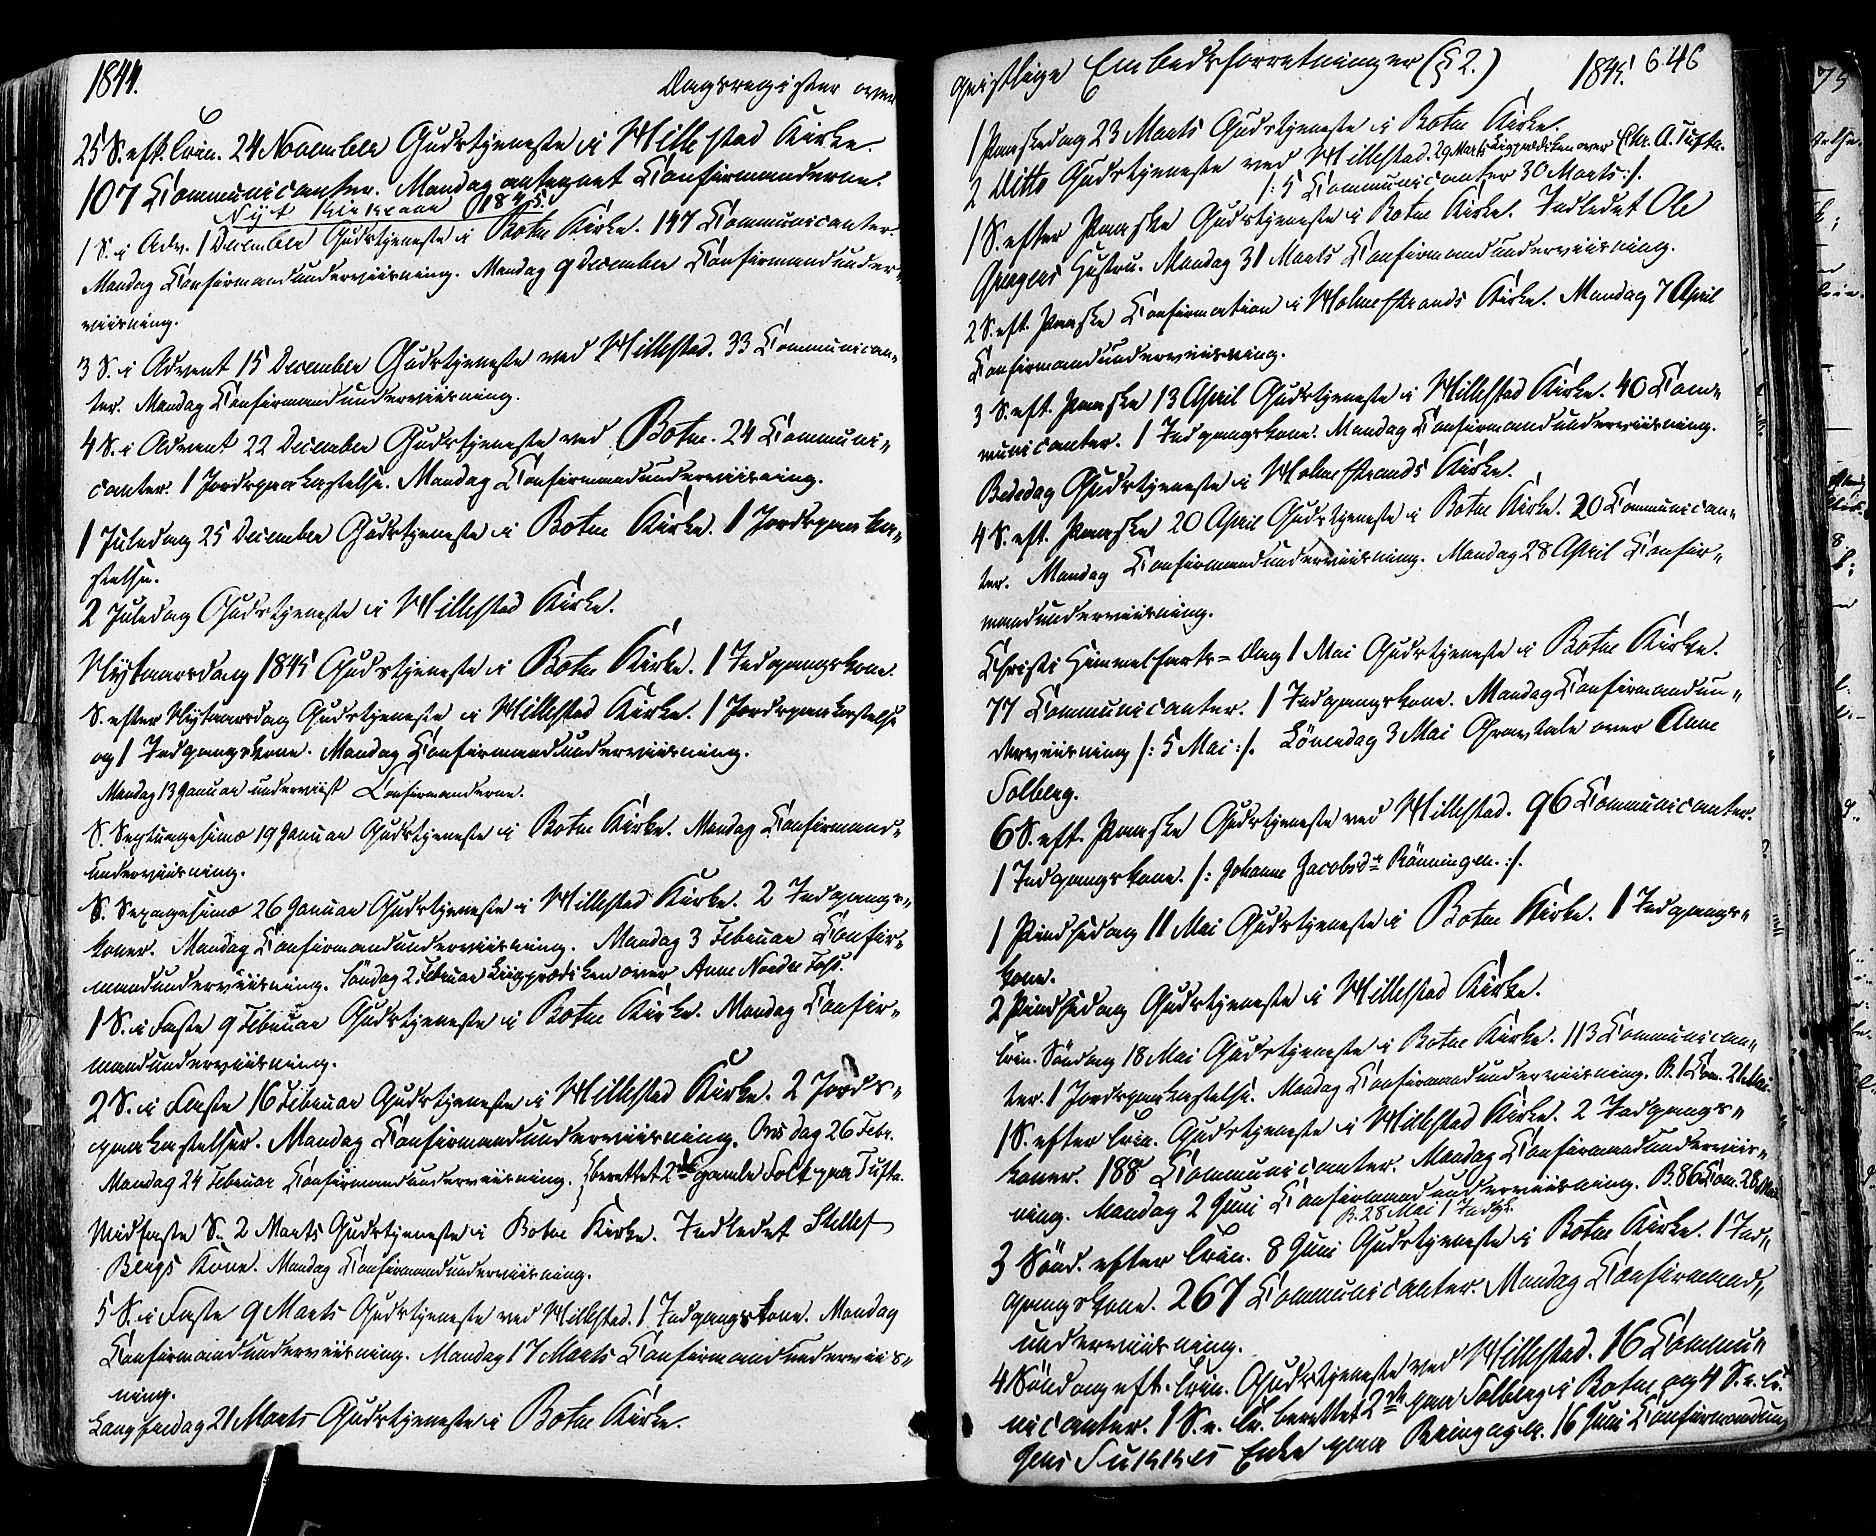 1844.
Dagsregister over
25 S. eft. Trin. 24 November Gudstjeneste i Hillestad Kirke.
107 Communicanter. Mandag antegnet Confirmanderne.
Nyt Kirkeaar 1845.
1 S. i Adv. 1 December Gudstjeneste i Botne Kirke. 147 Communicanter.
Mandag Confirmandunderviisning. Mandag 9 December Confirmandunder-
viisning.
3 S. i Advent 15 December Gudstjeneste ved Hillestad. 33 Communican-
ter. Mandag Confirmandunderviisning.
4 S. i Advent 22 December Gudstjeneste ved Botne. 24 Communi-
canter. 1 Jordpaakastelse. Mandag Confirmandunderviisning.
1 Juledag 25 December Gudstjeneste i Botne Kirke. 1 Jordspaaka-
stelse.
2 Juledag Gudstjeneste i Hillestad Kirke.
Nytaarsdag 1845 Gudstjeneste i Botne Kirke. 1 Indgangskone.
S. efter Nytaarsdag Gudstjeneste i Hillestad Kirke. 1 Jordspaakastelse
og 1 Indgangskone. Mandag Confirmandunderviisning.
Mandag 13 Januar underviist Confirmanderne.
S. Septuagesimæ 19 Januar Gudstjeneste i Botne Kirke. Mandag Confirmand-
underviisning.
S. Sexagesimæ 26 Januar Gudstjeneste i Hillestad Kirke. 2 Indgangs-
koner. Mandag Confirmandunderviisning. Mandag 3 Februar Confir-
mandunderviisning. Söndag 2 Februar Liigprædiken over Anne Nordre
1 S. i Faste 9 Februar Gudstjeneste i Botne Kirke. Mandag Confir-
mandunderviisning.
2 S. i Faste 16 Februar Gudstjeneste i Hillestad Kirke. 2 Jords-
paakastelser. Mandag Confirmandunderviisning. Onsdag 26 Febr.
Mandag 24 Februar Confirmandunderviisning. berettet 2de gamle Folk paa Tufte.
Midfaste S. 2 Marts Gudstjeneste i Botne Kirke. Indledet
Bergs Kone. Mandag Confirmandunderviisning.
5 S. i Faste 9 Marts Gudstjeneste ved Hillestad. 1 Indgangskone. Mandag
Confirmandunderviisning. Mandag 17 Marts Confirmandunderviis-
ning.
Langfredag 21 Marts Gudstjeneste i Botne Kirke.
geistlige Embedsforretninger (§ 2.) 1845. 646
1 Paaskedag 23 Marts Gudstjeneste i Botne Kirke.
2 Ditto Gudstjeneste ved Hillestad. 29 Marts Liigprædiken over Chr. A. Tufte.
/: 5 Communicanter 30 Marts :/.
1 S. efter Paaske Gudstjeneste i Botne Kirke. Indledet Ole
Hustru. Mandag 31 Marts Confirmandunderviisning.
2 S. eft. Paaske Confirmation i Holmestrands Kirke. Mandag 7 April
Confirmandunderviisning.
3 S. eft. Paaske 13 April Gudstjeneste i Hillestad Kirke. 40 Com-
municanter. 1 Indgangskone. Mandag Confirmandunderviisning.
Bededag Gudstjeneste i Holmestrands Kirke.
4 S. eft. Paaske 20 April Gudstjeneste i Botne Kirke. 20 Communican-
ter. Mandag Confirmandunderviisning. Mandag 28 April Confir-
mandunderviisning.
Christi Himmelfarts-Dag 1 Mai Gudstjeneste i Botne Kirke.
77 Communicanter. 1 Indgangskone. Mandag Confirmandun-
derviisning /: 5 Mai :/. Löverdag 3 Mai Gravtale over Anne
Solberg.
6 S. eft. Paaske Gudstjeneste ved Hillestad. 96 Communicanter.
1 Indgangskone. /: Johanne Jacobsdr Rönningen. :/.
1 Pindsedag 11 Mai Gudstjeneste i Botne Kirke. 1 Indgangs-
kone.
2 Pindsedag Gudstjeneste i Hillestad Kirke.
Trin. Söndag 18 Mai Gudstjeneste i Botne Kirke. 113 Communican-
ter. 1 Jordspaakastelse. Mandag Confirmandunderviisning. B. 1 Com. 21 Mai.
1 S. efter Trin. Gudstjeneste i Hillestad Kirke. 2 Indgangs-
koner. 188 Communicanter. Mandag Confirmandunderviis-
ning. Mandag 2 Juni Confirmandunderviisning. B. 86 Com. 28 Mai
B. 28 Mai 1 Indgk.
3 Sönd. efter Trin. 8 Juni Gudstjeneste i Botne Kirke. 1 Ind-
gangskone. 267 Communicanter. Mandag Confirmand-
underviisning.
4 Söndag eft. Trin. Gudstjeneste ved Hillestad. 16 Commu-
nicanter. 1 S. e. Tr. berettet 2de paa Solberg i Botne og 4 S. e. Tr.
Enke paa 16 Juni Confirmandun